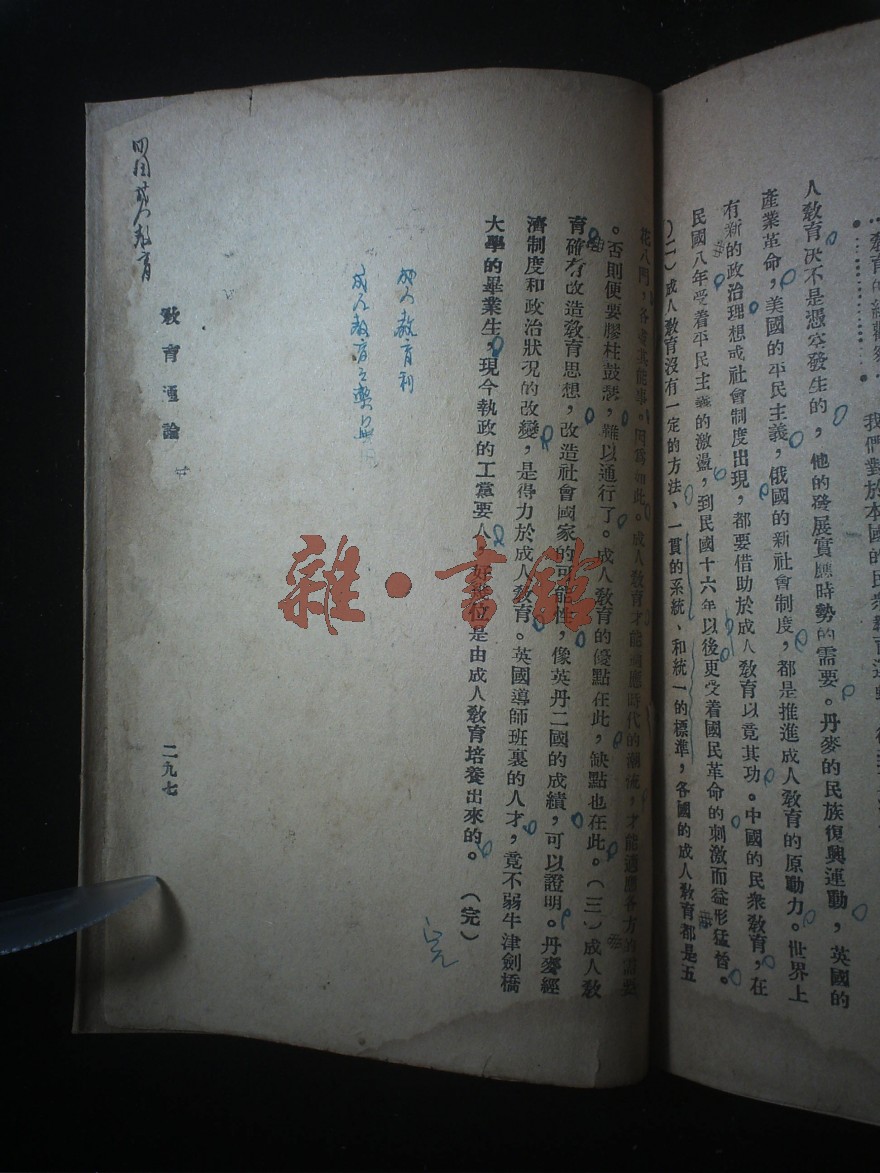 我們對於本國的民衆教育運動
人教育決不是憑空發生的，他的發展實應時勢的需要。丹麥的民族復興運動，英國的
產業革命，美國的平民主義，俄國的新社會制度，都是推進成人教育的原動力。世界上
有新的政治理想或社會制度出現，都要借助於成人教育以竟其功。中國的民衆教育，在
民國八年受着平民主義的激盪，到民國十六年以後更受着國民革命的刺激而益形猛晉。
（二）成人教育沒有一定的方法、一貫的系統、和統一的標準，各國的成人教育都是五
花八門，各盡其能事。因爲如此。成人教育才能適應時代的潮流，才能適應各方的需要
。否則便要膠柱鼓瑟，難以通行了。成人教育的優點在此，缺點也在此。（三）成人教
育確有改造教育思想，改造社會國家的可能性，像英丹二國的成績，可以證明。丹麥經
濟制度和政治狀況的改變，是得力於成人教育。英國導師班裏的人才，竟不弱牛津劍橋
大學的畢業生，現今執政的工黨要人，好幾位是由成人教育培養出來的。（完）
完
成人教育利
成人教育之弊
教育通論
二九七
成人教育
雜·書館